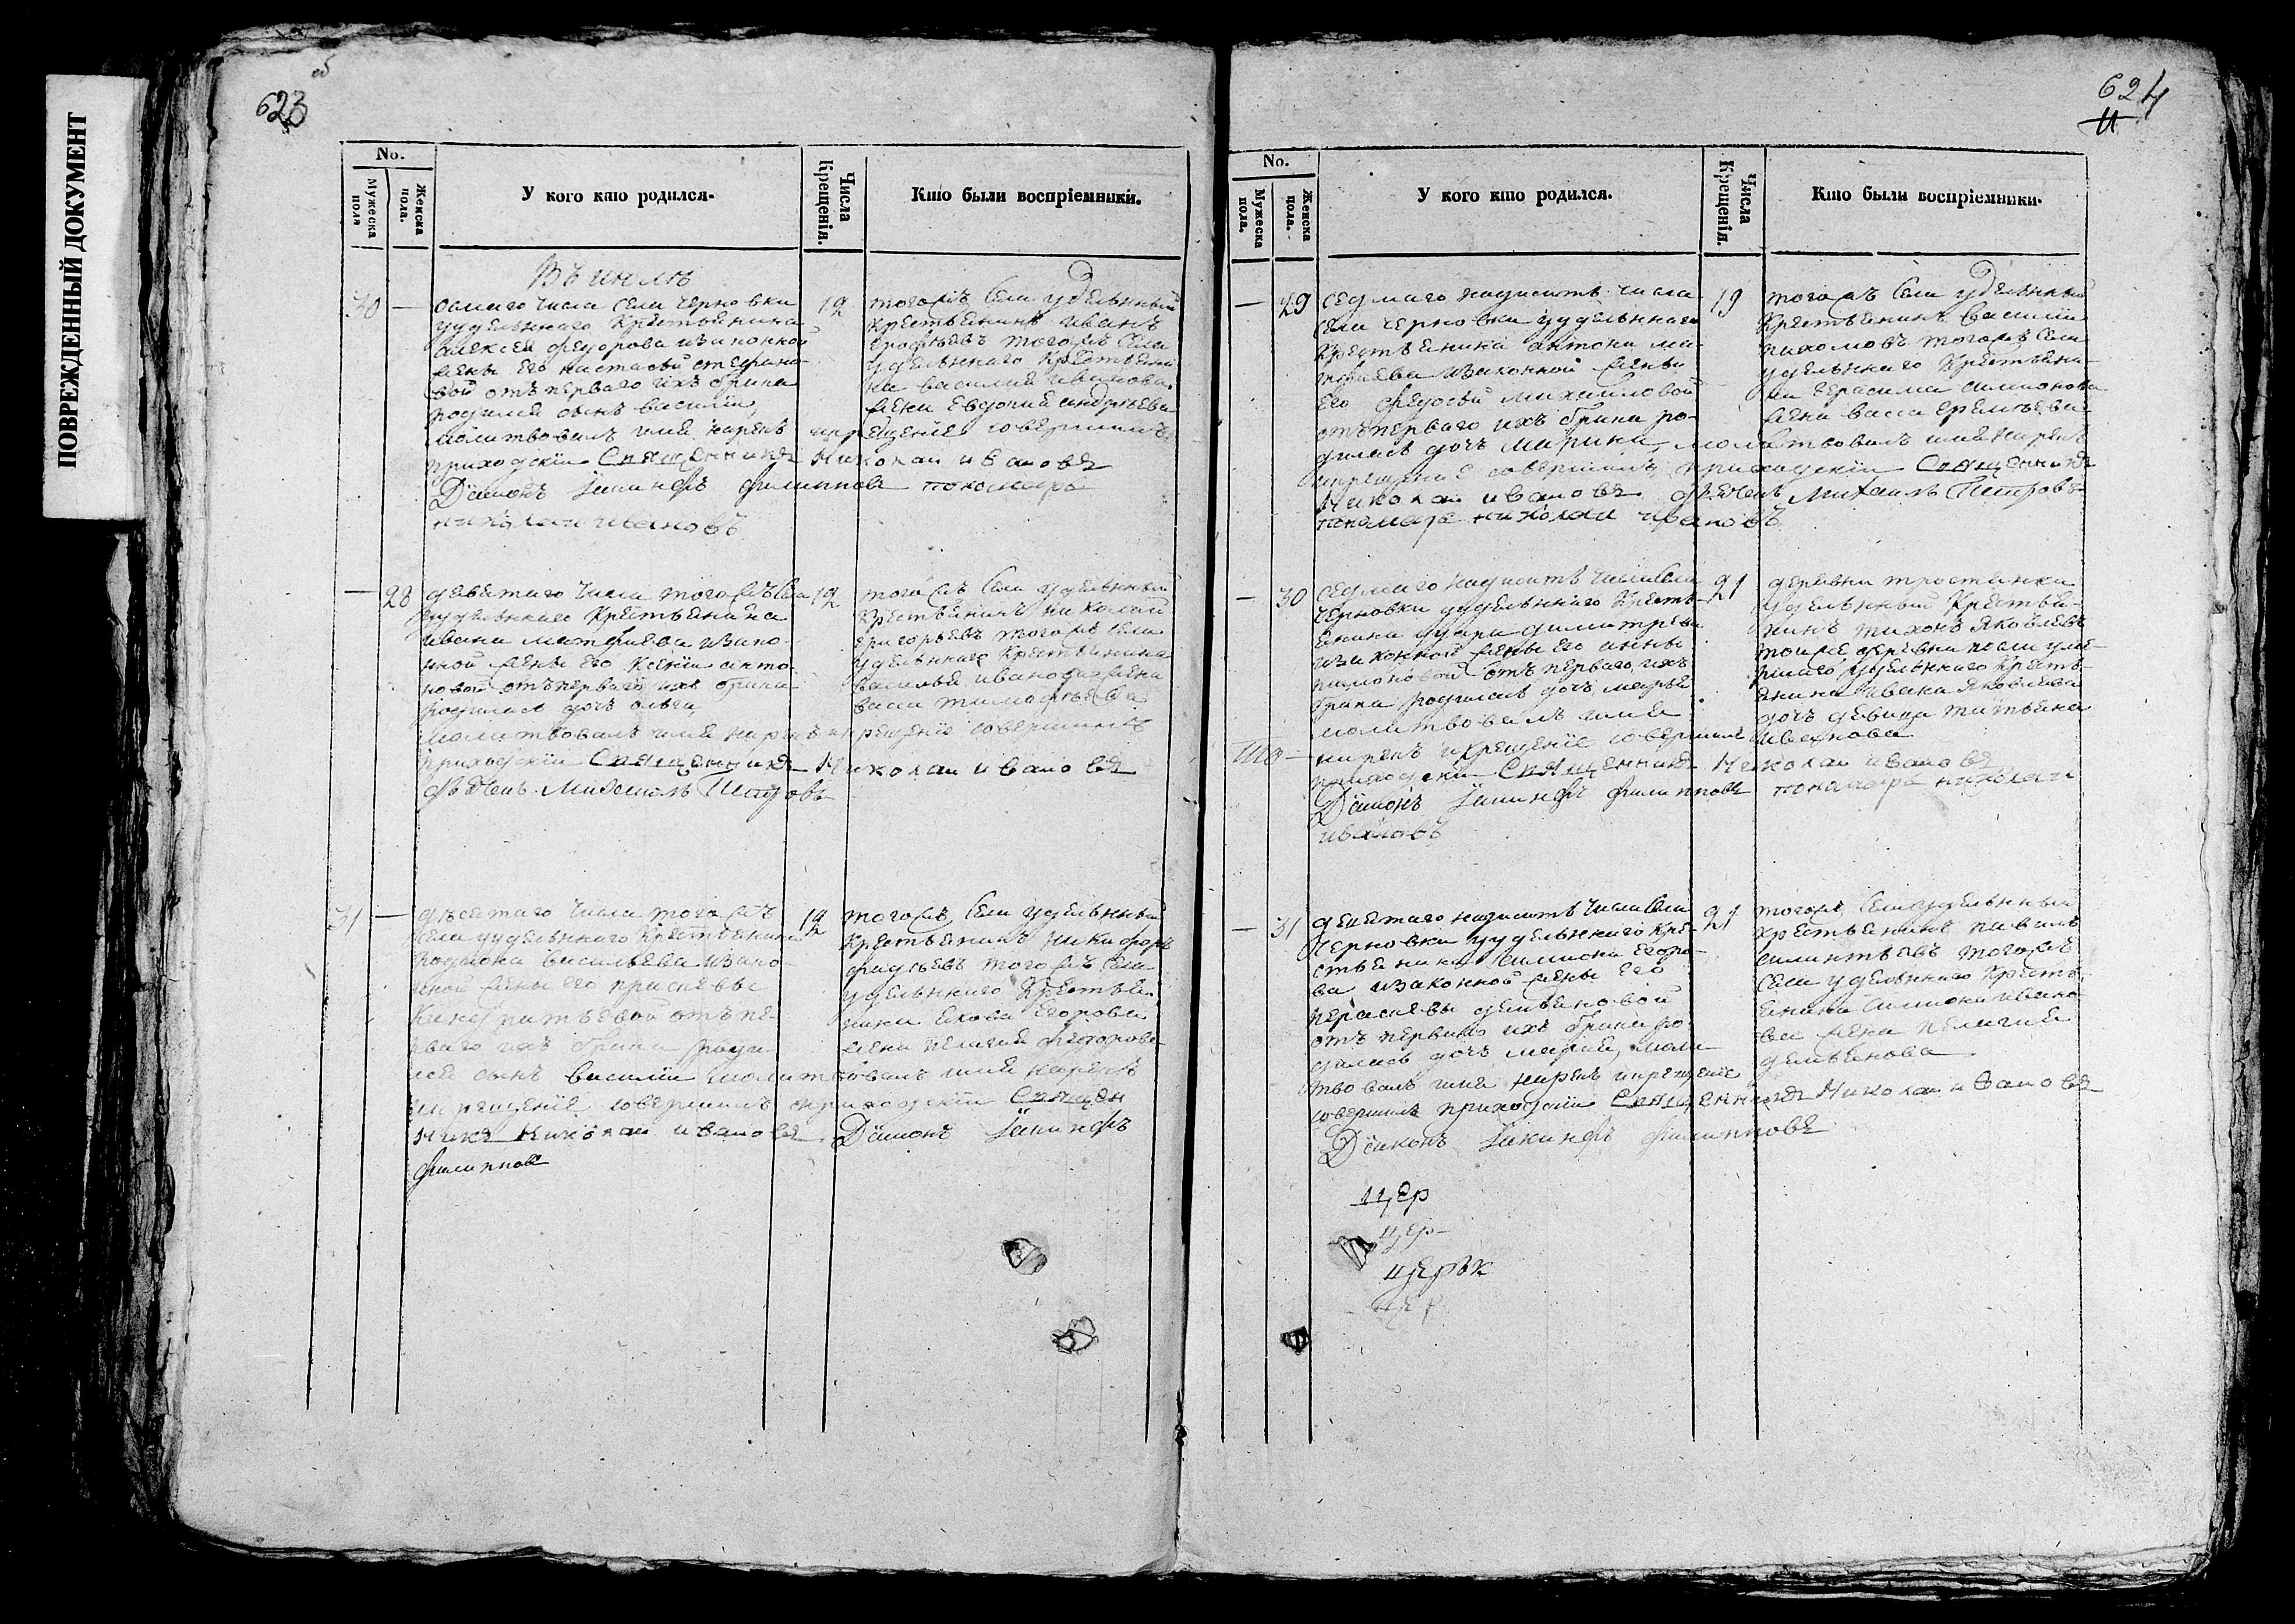 ПОВРЕЖДЕННЫЙ ДОКУМЕНТ
об
623
No.
Мужеска пола
Женска пола.
У кого кто родился.
Числа Крещенія.
Кто были воспріемники.
Въ июлѣ
30 —
осмаго числа села черновки
у удельнаго Крестьянина
алексея федорова иззаконной
жены его настасьи стефано-
вой отъ перваго ихъ брака
родился сынъ василiи
молитвовалъ имя нарекъ и крещенiе совершилъ
приходскiи Священникъ Николаи ивановъ
Дiяконъ Iакинфъ филипповъ пономарь
николаи ивановъ
12
тогожъ села удельный
Крестьянинъ иванъ
ерофѣевъ тогожъ села
удельнаго Крестьяни
на василия иванова
жена Евдокия андреева
— 28
девятаго числа тогожъ села
у удельнаго Крестьянина
ивана матфиева иззако-
нной жены его Ксенiи анто-
новой отъ перваго ихъ брака
родилась дочь ольга
молитвовалъ имя нарекъ и крещенiе совершилъ
приходскiи Священникъ Николаи ивановъ
дьячекъ Михаилъ Петровъ
12
тогожъ села удельный
Крестьянинъ николай
григорьевъ тогожъ села
удельнаго Крестьянина
василья иванова жена
васса тимофѣева
31 —
десятаго числа тогожъ
села у удельнаго Крестьянина
Родиона васильева иззако-
нной жены его прасковьи
отъ пе-
рваго ихъ брака роди
лся сынъ василiи молитвовалъ имя нарекъ
и крещенiе совершилъ приходскiи Священ
никъ Николаи ивановъ Дiяконъ Iакинфъ
филипповъ
12
тогожъ села удельный
Крестьянинъ никифоръ
фадѣевъ тогожъ села
удельнаго Крестьяни
нина Якова Егорова
жена пелагия федорова
624
No.
Мужеска пола.
Женска пола.
У кого кто родился.
Числа Крещенія.
Кто были воспріемники.
— 29
седмаго надесять числа
села черновки у удельнаго
Крестьянина антона ма-
тфиева иззаконной жены
его федосьи михаиловой
отъ перваго ихъ брака ро-
дилась дочь марина, молитвовалъ имя нарекъ
и крещенiе совершилъ приходскiи Священникъ
Николаи ивановъ дьячекъ Михаилъ Петровъ
пономарь николаи ивановъ
19
тогожъ села удельный
Крестьянинъ василiи
пахомовъ тогожъ села
удельнаго Крестьяни-
на герасима симионова
жена васса еремѣева
— 30
седмаго надесять числа села
черновки у удельнаго Кресть-
янина димитрева
иззаконной жены его анны
отъ перваго ихъ
брака родилась дочь марья
молитвовалъ имя
нарекъ и крещенiе совершилъ
приходскiи Священникъ Николаи ивановъ
Дiяконъ Iакинфъ филипповъ пономарь николаи
ивановъ
21
деревни тростянки
удельный Крестья-
нинъ тихонъ Яковлевъ
тояже деревни после уме-
ршаго удельнаго Кресть-
янина ивана Яковлева
дочь девица татьяна
иванова
— 31
девятаго надесять числа села
Черновки у удельнаго Кре-
стьянина симиона Егоро-
ва иззаконной жены его
парасквы демьяновой
отъ перваго ихъ брака ро-
дилась дочь мария, моли
твовалъ имя нарекъ и крещенiе
совершилъ приходскiи Священникъ Николаи ивановъ
Дiяконъ Iакинфъ филипповъ
21
тогожъ села удельный
Крестьянинъ павелъ
тогожъ
села удельнаго Кресть-
янина симиона ивано
ва жена пелагия
демьянова
цер
цер-
церьк
цер